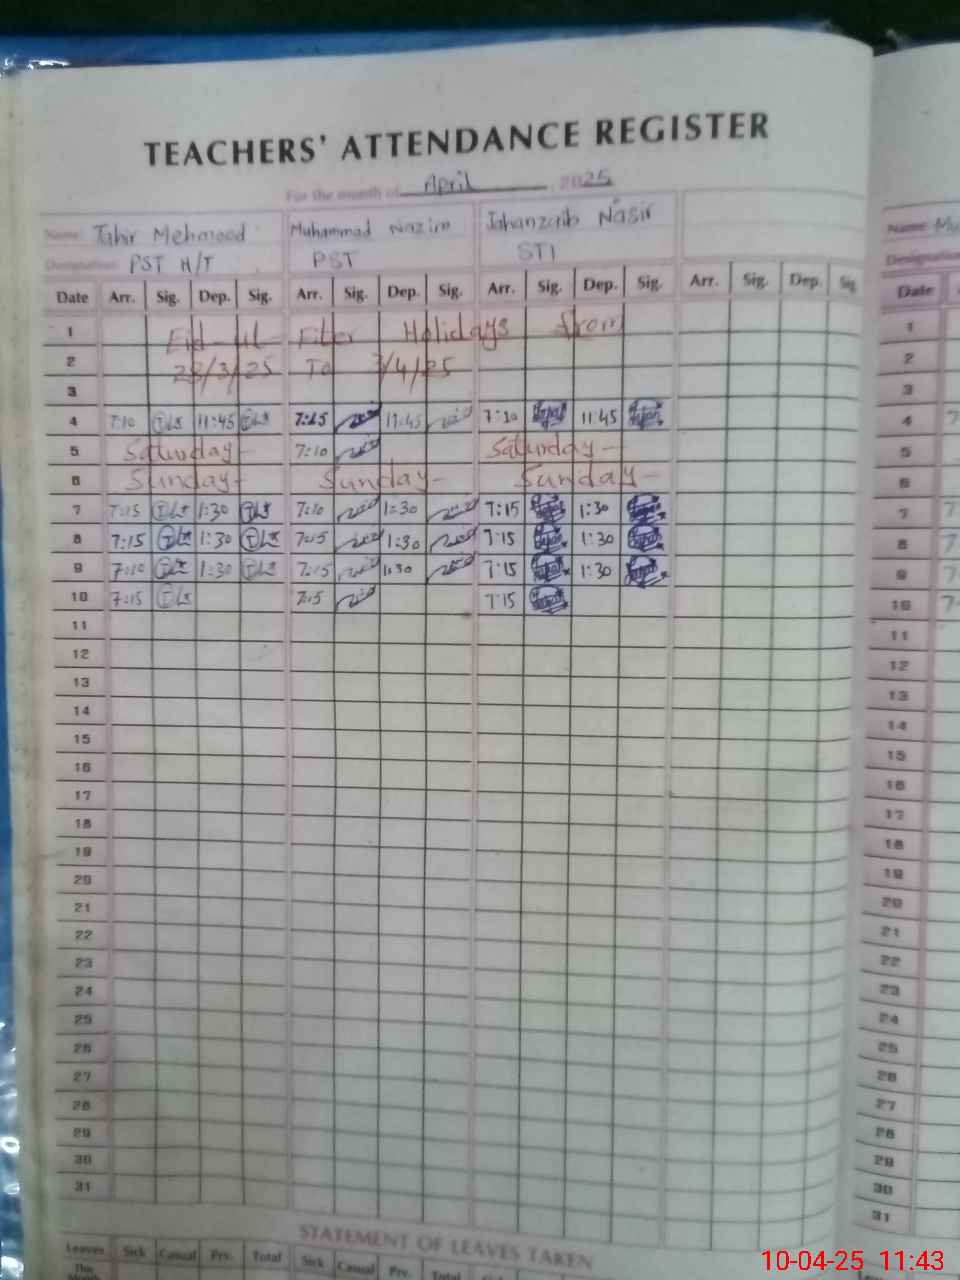 TEACHERS' ATTENDANCE REGISTER
For the month of April 2025
Name: Tahir Mehmood Muhammad Nazim Jahanzaib Nasir Name: Mu
Designation: PST H/T PST STI Designation
Date Arr. Sig. Dep. Sig. Arr. Sig. Dep. Sig. Arr. Sig. Dep. Sig. Arr. Sig. Dep. Sig Date
1 Eid-ul-Fiter Holidays from 1
2 28/3/25 To 3/4/25 2
3 3
4 7:10 11:45 7:15 11:45 7:10 11:45 4 7
5 Saturday- 7:10 Saturday- 5
6 Sunday- Sunday- Sunday- 6
7 7:15 1:30 7:10 1:30 7:15 1:30 7 7
8 7:15 1:30 7:15 1:30 7:15 1:30 8 7
9 7:10 1:30 7:15 1:30 7:15 1:30 9 7
10 7:15 7:15 7:15 10 7
11 11
12 12
13 13
14 14
15 15
16 16
17 17
18 18
19 19
20 20
21 21
22 22
23 23
24 24
25 25
26 26
27 27
28 28
29 29
30 30
31 31
STATEMENT OF LEAVES TAKEN
Leaves Sick Casual Prv. Total Sick Casual Prv. Total
This Month
10-04-25 11:43